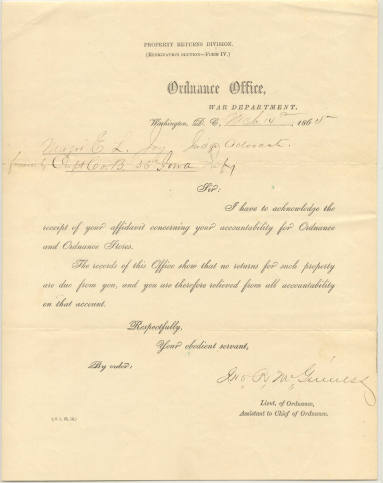 PROPERTY RETURNS DIVISION.
(RESIGNATION SECTION—FORM IV.)
Ordnance Office,
WAR DEPARTMENT.
Washington, D. C., 14 1865
Major E. L. Joy, Judge Advocate
formerly Capt Co B 36 Iowa Infy
Sir:
I have to acknowledge the
receipt of your affidavit concerning your accountability for Ordnance
and Ordnance Stores.
The records of this Office show that no returns for such property
are due from you, and you are therefore relieved from all accountability
on that account.
Respectfully,
Your obedient servant,
By order:
Lieut. of Ordnance,
Assistant to Chief of Ordnance.